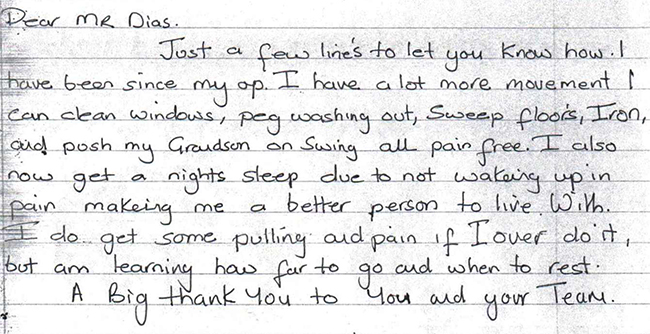 Dear MR Dias.
Just a few line's to let you know how. I
have been since my op. I have a lot more movement I
can clean windows, peg washing out, Sweep floors, Iron,
and push my Grandson on Swing all pain free. I also
now get a nights sleep due to not wakeing up in
pain makeing me a better person to live With.
I do get some pulling and pain if I over do it,
but am learning how far to go and when to rest.
A Big thank You to You and your Team.